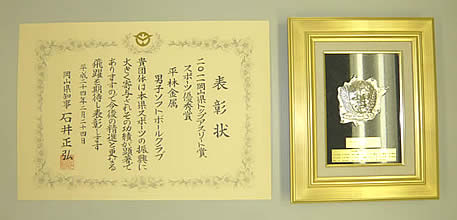 表彰状
二〇一一岡山県トップアスリート賞
スポーツ優秀賞
平林金属
男子ソフトボールクラブ
貴団体は本県スポーツの振興に
大きく寄与されその功績が顕著で
ありますので今後の精進と更なる
飛躍を期待し表彰します
平成二十四年二月二十四日
岡山県知事 石井正弘